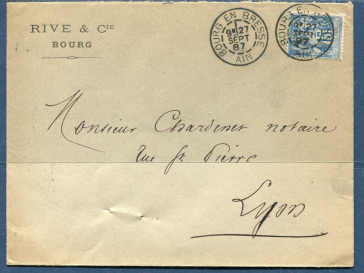 RIVE & CIE
BOURG
BOURG EN BRESSE
9E 27
SEPT
87
AIN
BOURG EN
27
SEPT
87
AIN
15
Monsieur Chardenet notaire
rue St Pierre
Lyon